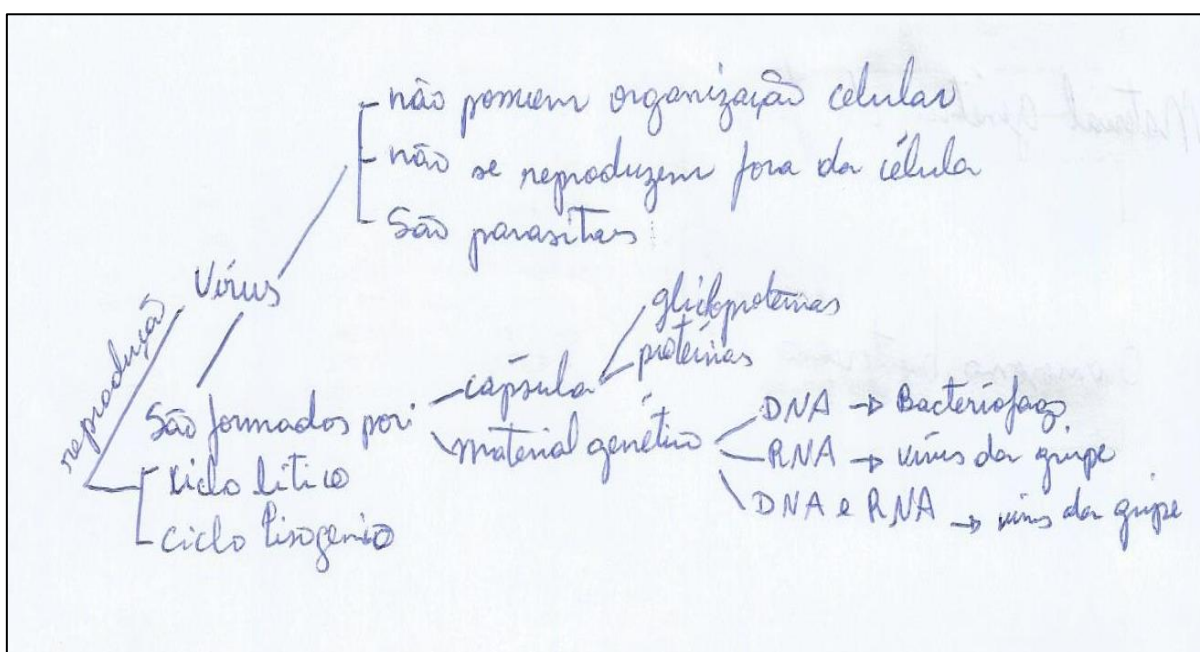 - não possuem organização celular
- não se reproduzem fora da célula
- São parasitas
Vírus
reprodução
glicloproteinas
proteínas
São formados por:
- cápsula
material genético
DNA → Bacteriófago
- RNA → vírus da gripe
DNA e RNA → vírus da gripe
ciclo lítico
ciclo lisogenio